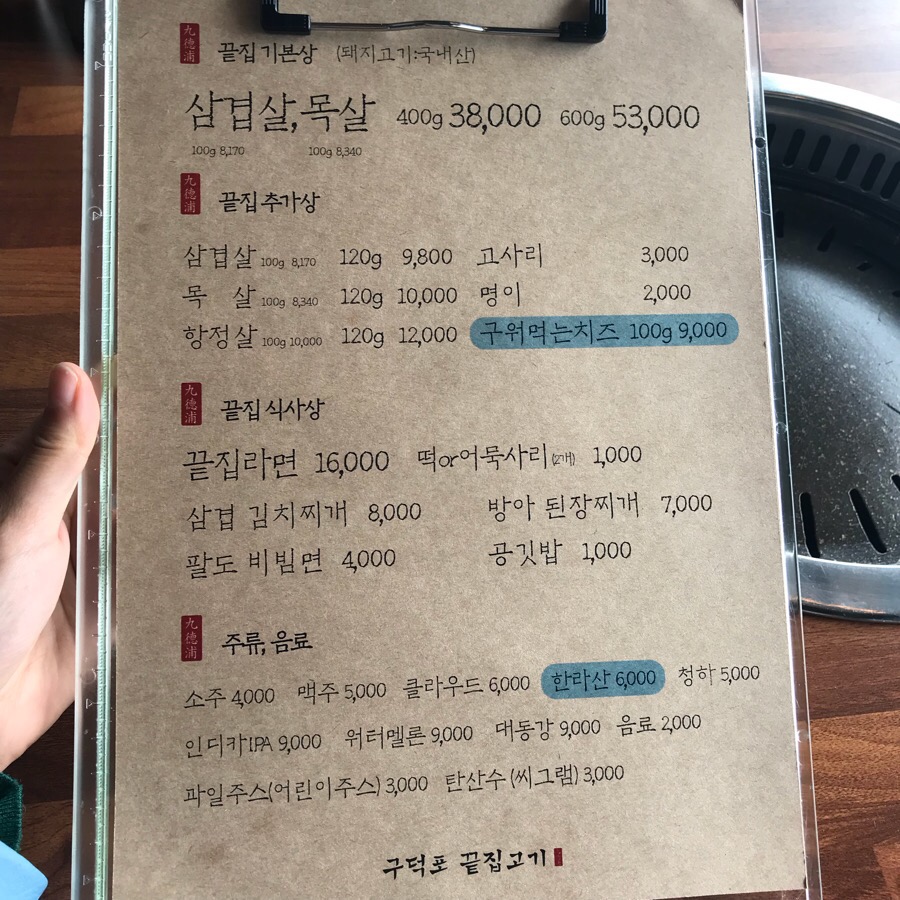 九德浦 끝집 기본상 (돼지고기:국내산)
삼겹살, 목살 400g 38,000 600g 53,000
100g 8,170 100g 8,340
九德浦 끝집 추가상
삼겹살 100g 8,170 120g 9,800 고사리 3,000
목 살 100g 8,340 120g 10,000 명이 2,000
항정살 100g 10,000 120g 12,000 구워먹는치즈 100g 9,000
九德浦 끝집 식사상
끝집라면 16,000 떡or어묵사리(2개) 1,000
삼겹 김치찌개 8,000 방아 된장찌개 7,000
팔도 비빔면 4,000 공깃밥 1,000
九德浦 주류, 음료
소주 4,000 맥주 5,000 클라우드 6,000 한라산 6,000 청하 5,000
인디카IPA 9,000 워터멜론 9,000 대동강 9,000 음료 2,000
파일주스(어린이주스) 3,000 탄산수 (씨그램) 3,000
구덕포 끝집고기